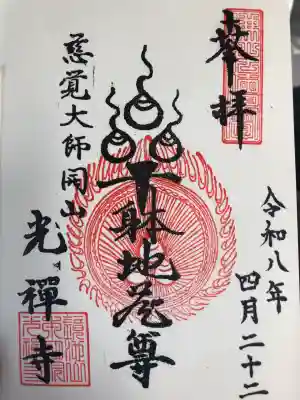 奉拝
令和八年
四月二十二
下躰地蔵尊
慈覚大師開山
光禪寺